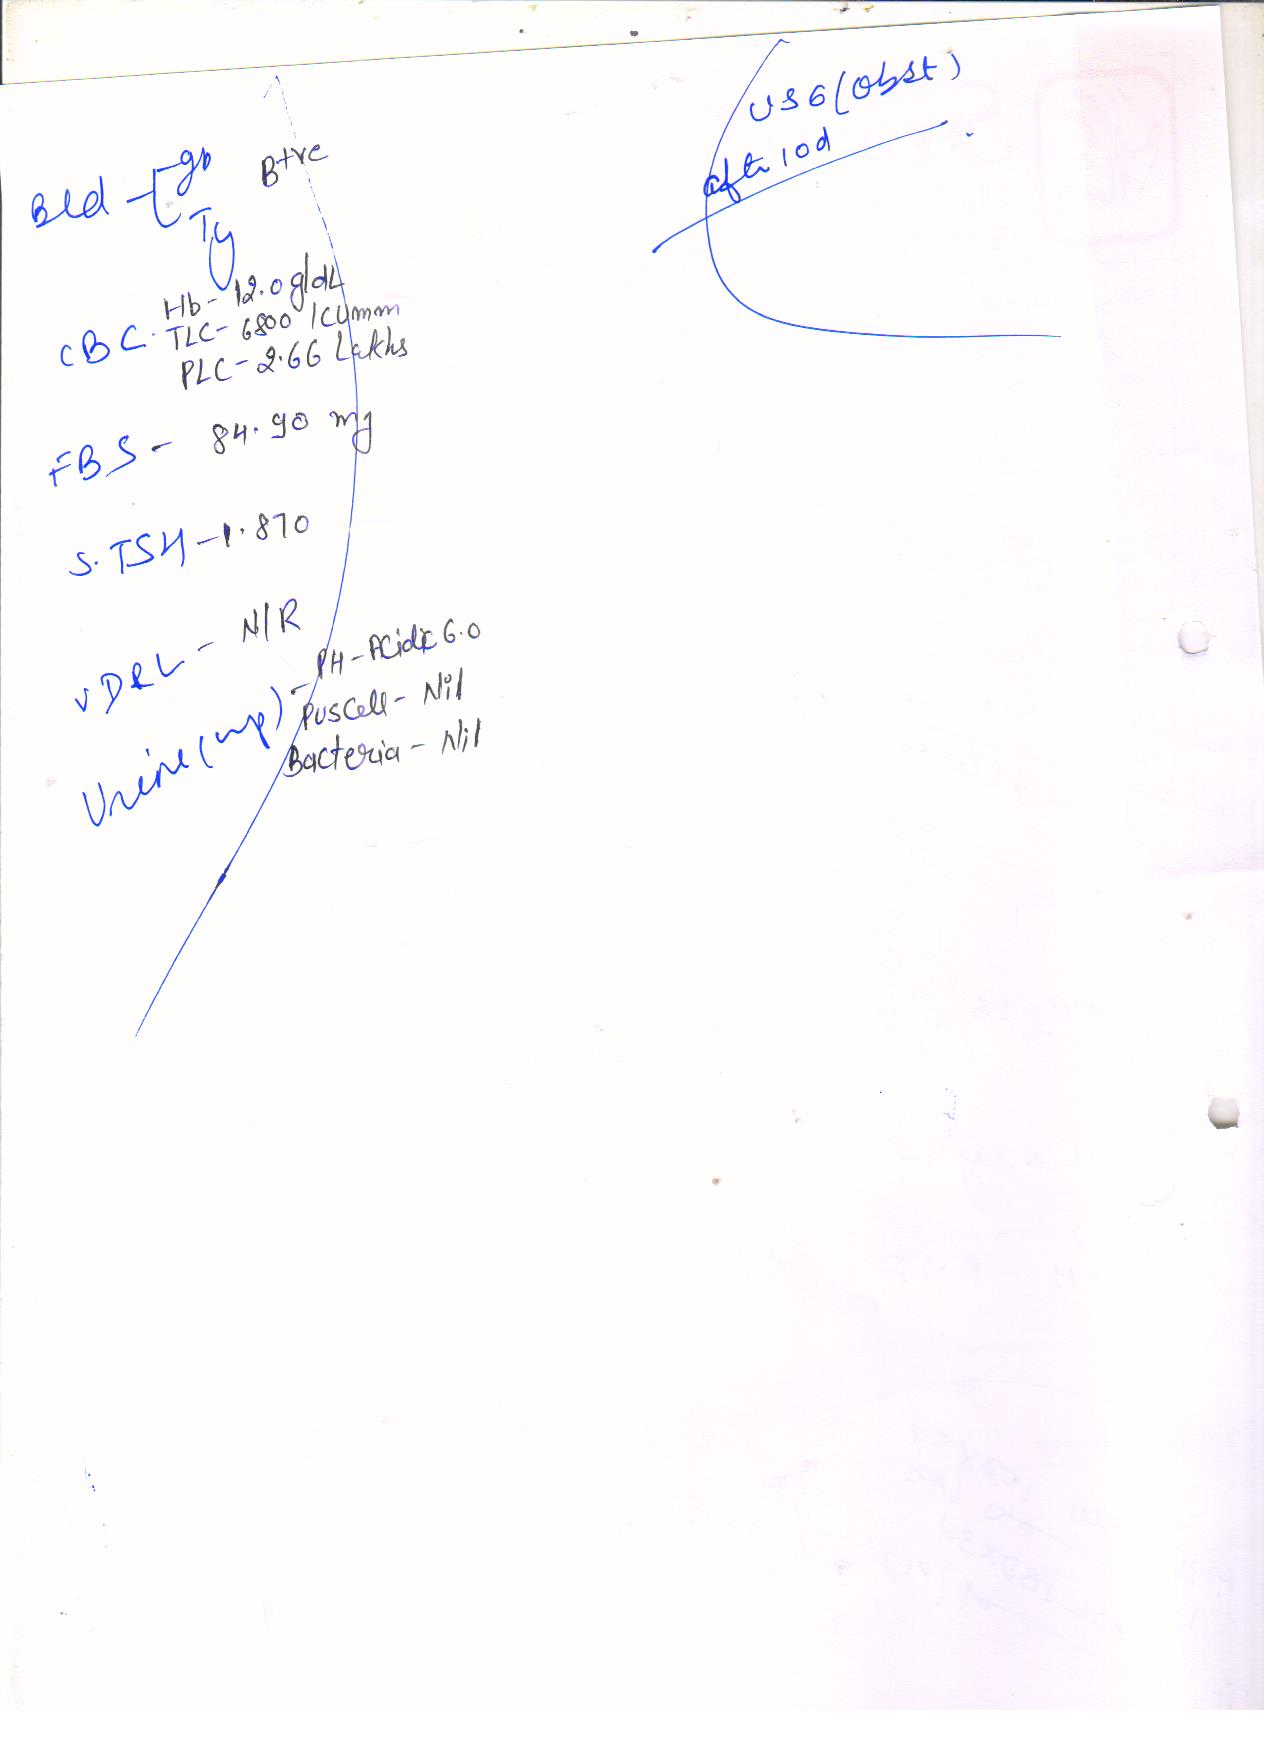 Bld - gp B+ve
Ty
CBC. Hb - 12.0 g/dL
TLC - 6800 /cumm
PLC - 2.66 Lakhs
FBS - 84.90 mg
S. TSH - 1.870
VDRL - N/R
Urine (mp) - PH - Acidic 6.0
Puscell - Nil
Bacteria - Nil
USG (Obst)
after 10d